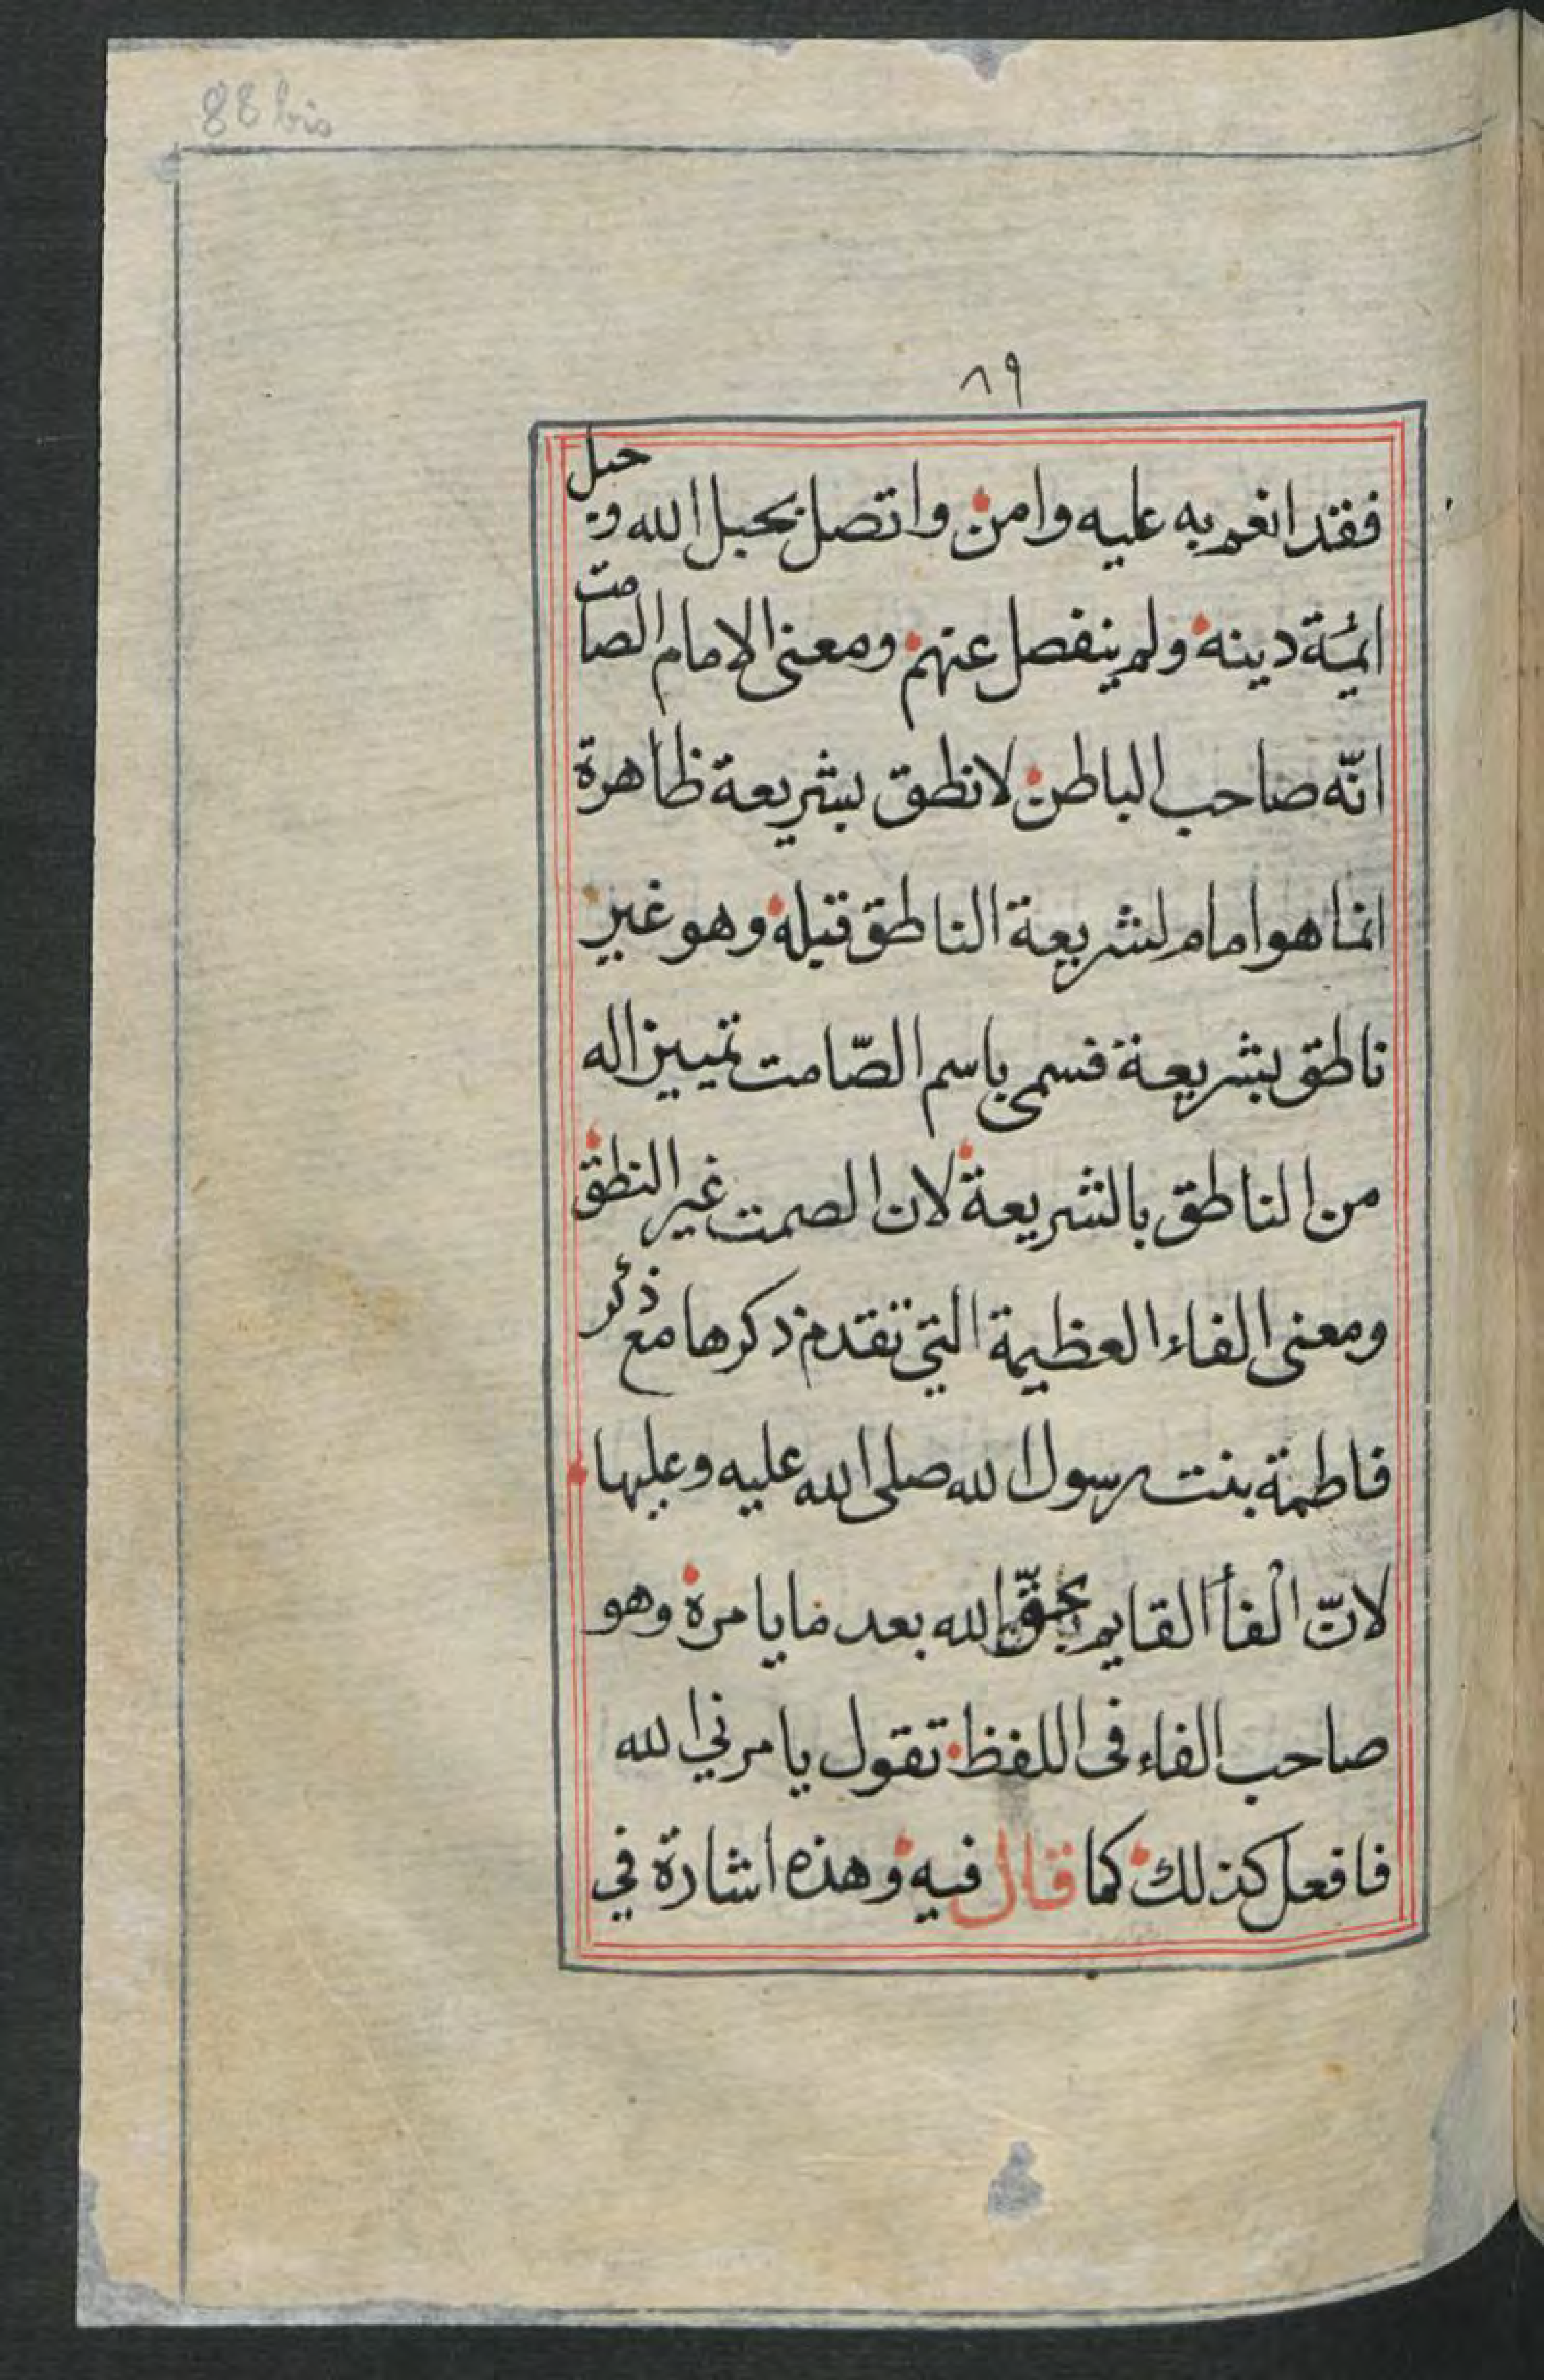 88 bis
٨٩
فقد انغم به عليه وامن واتصل بحبل الله و حبل
ائمة دينه ولم ينفصل عنهم ومعنى الامام الصامت
انّه صاحب الباطن لا نطق بشريعة ظاهرة
انما هو امام لشريعة الناطق قبله وهو غير
ناطق بشريعة فسمى باسم الصّامت تمييزا له
من الناطق بالشريعة لان الصمت غير النطق
ومعنى الفاء العظيمة التي تقدم ذكرها مع ذكر
فاطمة بنت رسول الله صلى الله عليه وعليها
لانّ الفأ القايم بحقّ الله بعد مايامره وهو
صاحب الفاء فى اللفظ تقول يامرني الله
فافعل كذلك كما قال فيه وهذه اشارة في